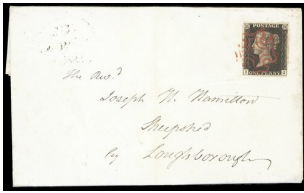 POSTAGE
ONE PENNY
The Revd
Joseph N. Hamilton
Sheepshed
By Loughborough